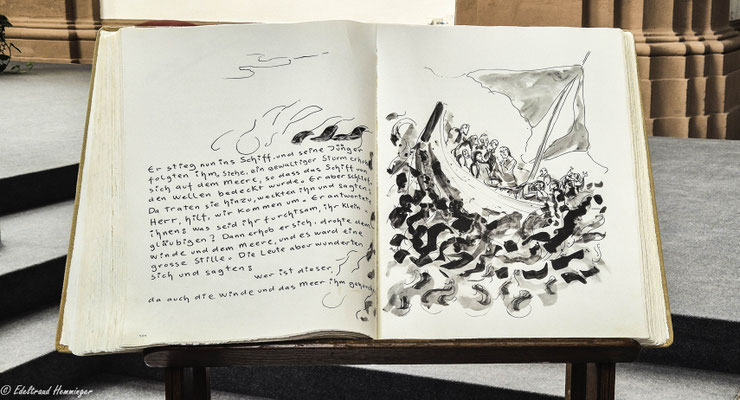 Er stieg nun ins Schiff, und seine Jünger
folgten ihm, Siehe, ein gewaltiger Sturm erhob
sich auf dem Meere, so dass das Schiff von
den Wellen bedeckt wurde. Er aber schlief.
Da traten sie hinzu, weckten ihn und sagten:
Herr, hilf, wir kommen um. Er antwortete
ihnen: was seid ihr furchtsam, ihr Klein
gläubigen? Dann erhob er sich, drohte dem
winde und dem meere, und es ward eine
grosse Stille. Die Leute aber wunderten
sich und sagten:
wer ist dieser,
da auch die winde und das meer ihm
© Edeltraud Hemminger